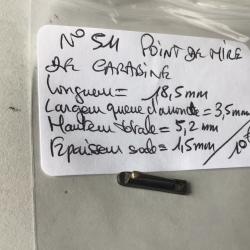 N° 511 POINT DE MIRE
DE CARABINE
Longueur = 18,5mm
Largeur queue d'aronde = 3,5mm
Hauteur totale = 5,2 mm
Epaisseur = 1,5mm / 10€